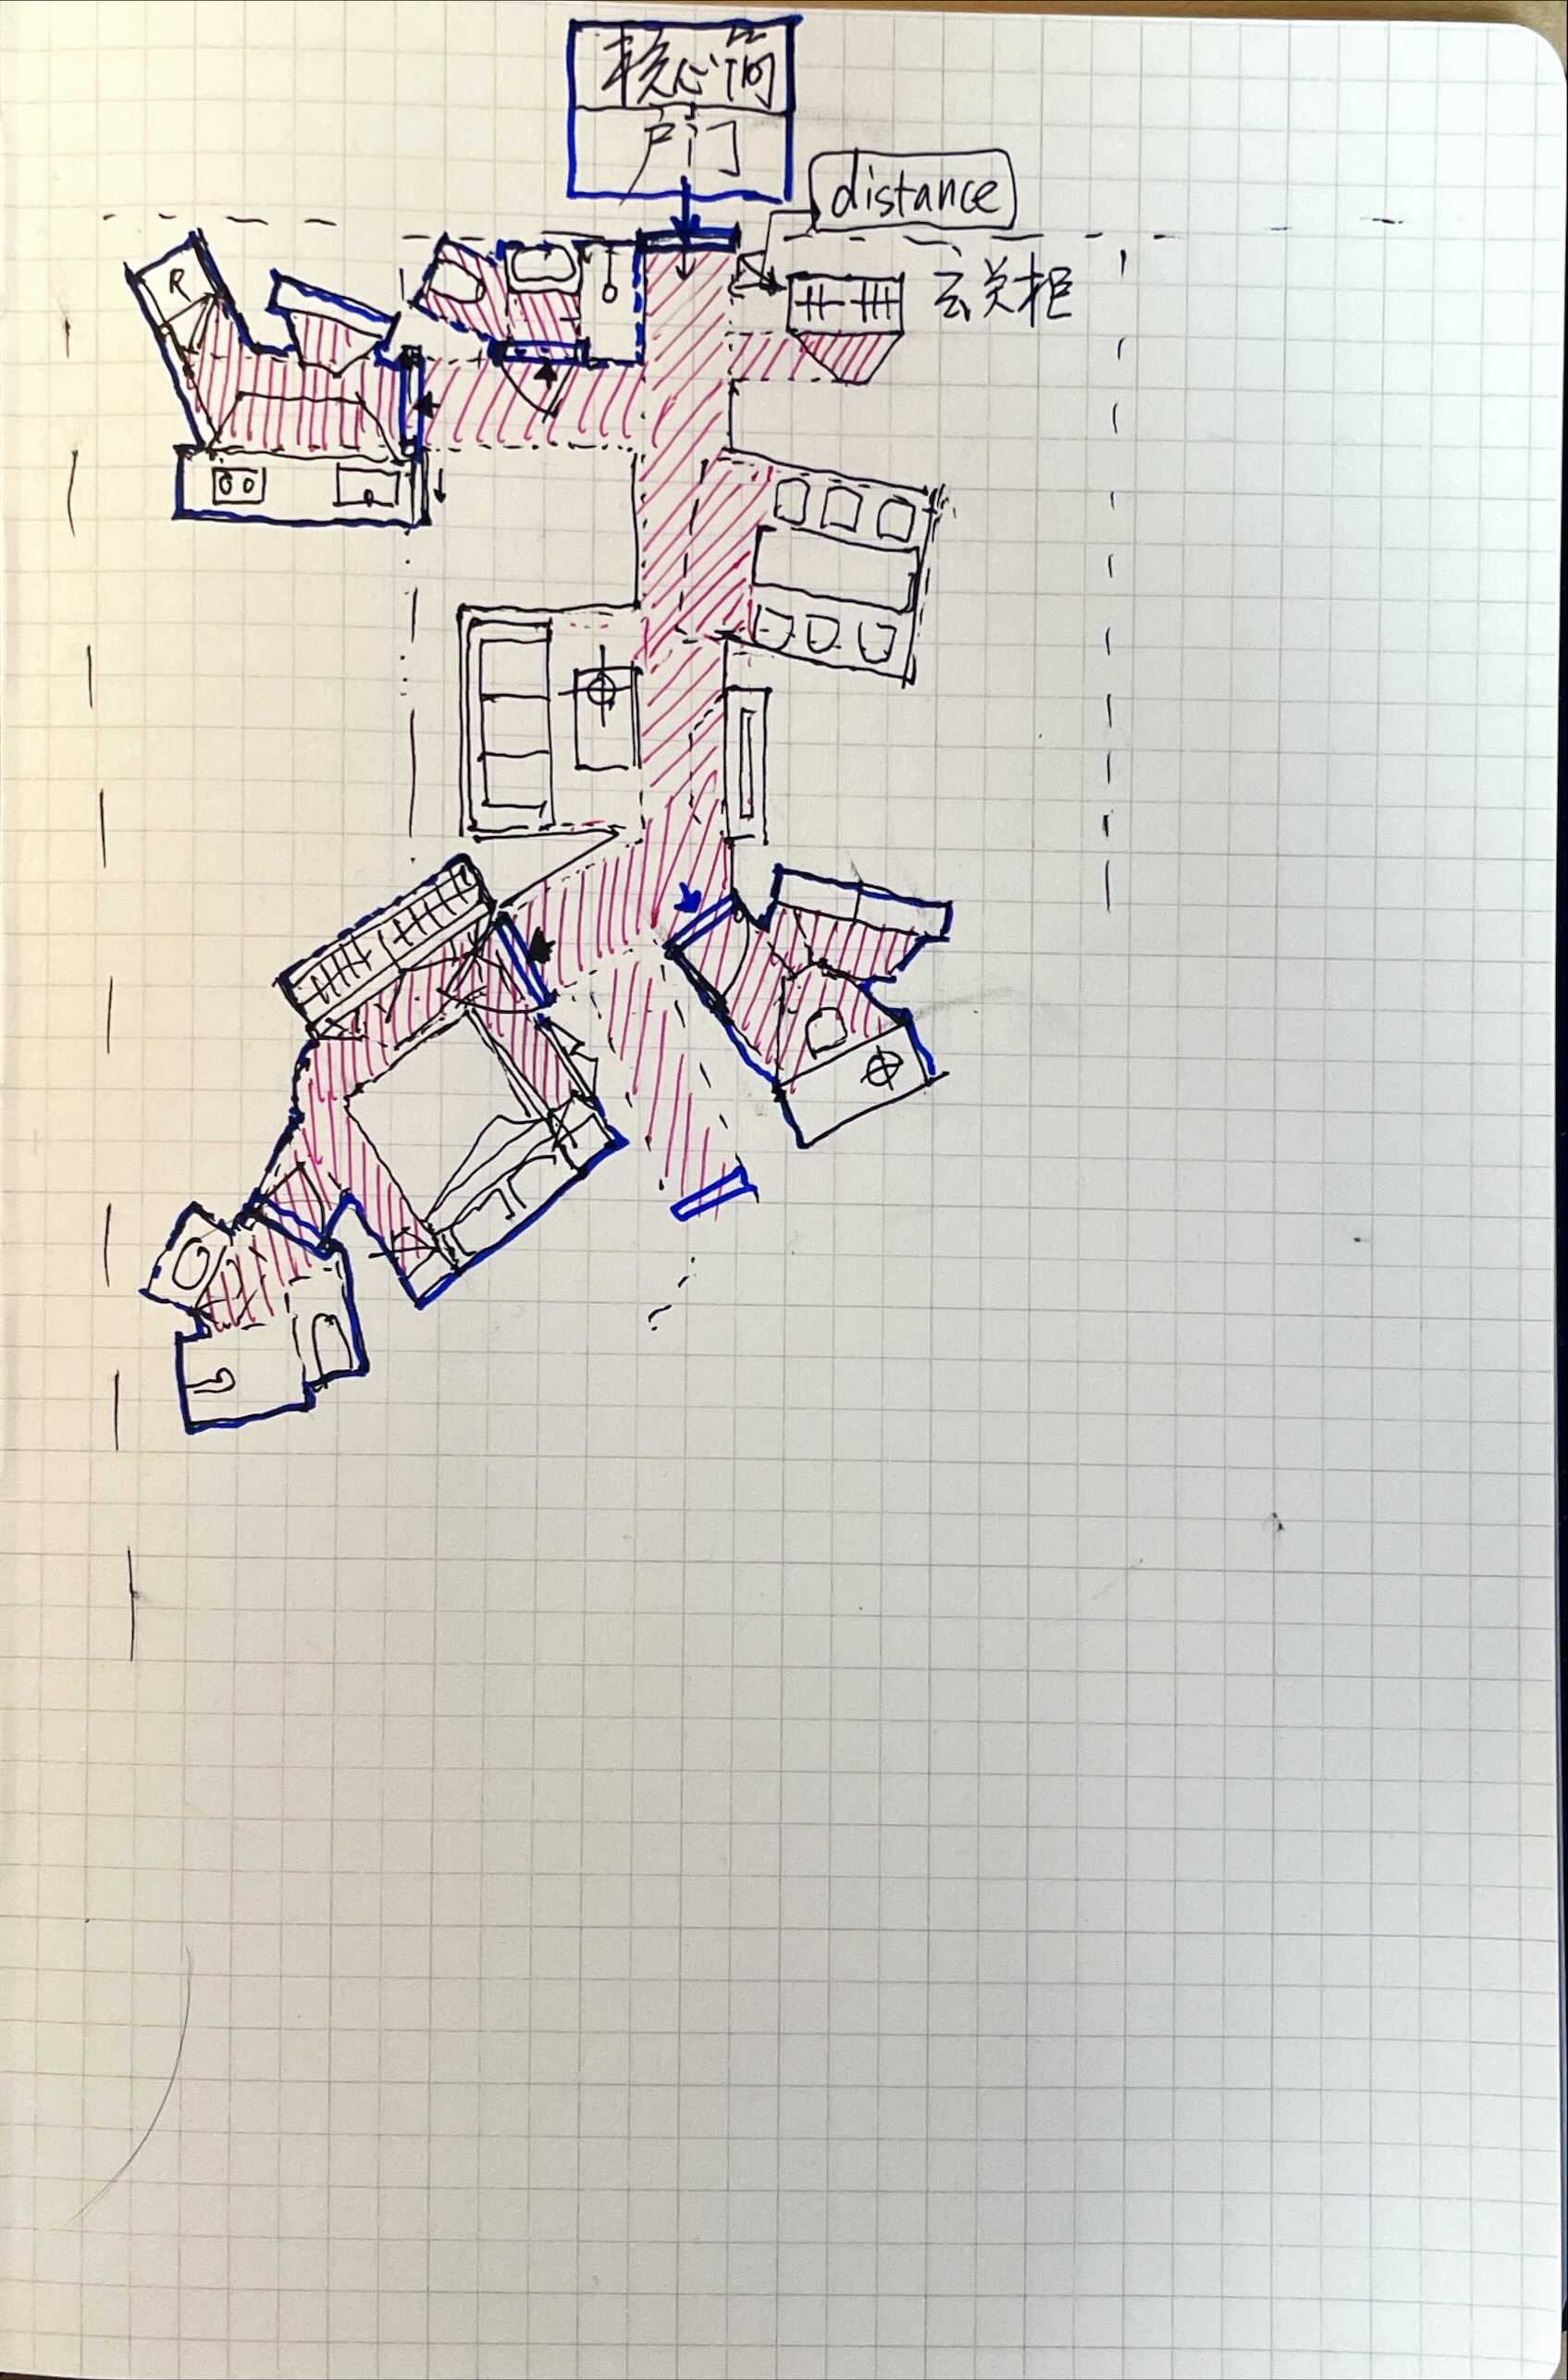 核心筒
户门
distance
玄关柜
R